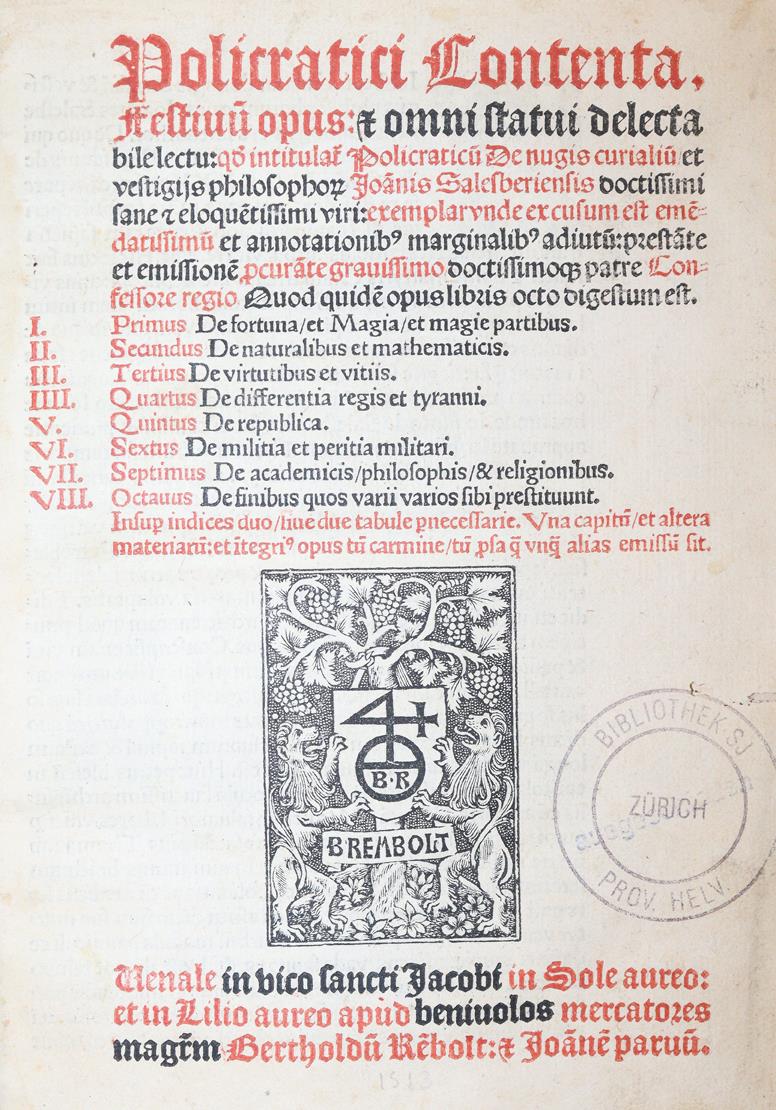 Policratici Contenta.
Festiuū opus: ⁊ omni statui delecta
bile lectu: qd̄ intitulat̄ Policraticū De nugis curialiū et
vestigijs philosophoꝝ Joānis Salesberiensis doctissimi
sane ⁊ eloquētissimi viri: exemplar vnde excusum est emē-
datissimū et annotationibꝰ marginalibꝰ adiutū: prestāte
et emissionē ꝓcurāte grauissimo doctissimoqꝫ patre Con-
fessore regio Quod quidē opus libris octo digestum est.
I. Primus De fortuna/et Magia/et magie partibus.
II. Secundus De naturalibus et mathematicis.
III. Tertius De virtutibus et vitiis.
IIII. Quartus De differentia regis et tyranni.
V. Quintus De republica.
VI. Sextus De militia et peritia militari.
VII. Septimus De academicis/philosophis/& religionibus.
VIII. Octauus De finibus quos varii varios sibi prestituunt.
Insuꝑ indices duo/siue due tabule ꝑnecessarie. Vna capitū/et altera
materiarū: et ītegriꝰ opus tū carmine/tū ꝓsa q̄ vnq̄ alias emissū sit.
B·R
B REMBOLT
BIBLIOTHEK SJ
ZÜRICH
PROV. HELV.
Uenale in vico sancti Jacobi in Sole aureo:
et in Lilio aureo apud beniuolos mercatores
magr̄m Bertholdū Rēbolt: ⁊ Joānē paruū.
1513